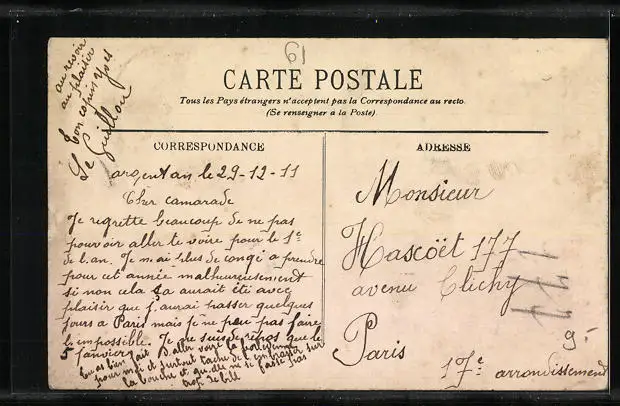 61
CARTE POSTALE
Tous les Pays étrangers n'acceptent pas la Correspondance au recto.
(Se renseigner à la Poste).
CORRESPONDANCE
argentan le 29-12-11
Cher camarade
Je regrette beaucoup de ne pas
pouvoir aller te voire pour le 1e
de l.an. Je n.ai plus de congé a prendre
pour cet année malheureusement
si non cela ça aurait été avec
plaisir que j'aurai passer quelques
jours a Paris mais je ne peu pas faire
l.impossible. Je suis de repos que le
5 janvier
tu as bien fait d'aller voire la
pour moi et surtout tache de l'embrasser sur
la bouche et qu.elle ne se fasse pas
trop de bile
au revoir
au plaisir
ton copain Yves
Le Guillou
ADRESSE
Monsieur
Hascoët 177
avenu Clichy
Paris
17e arrondissement
177
9-